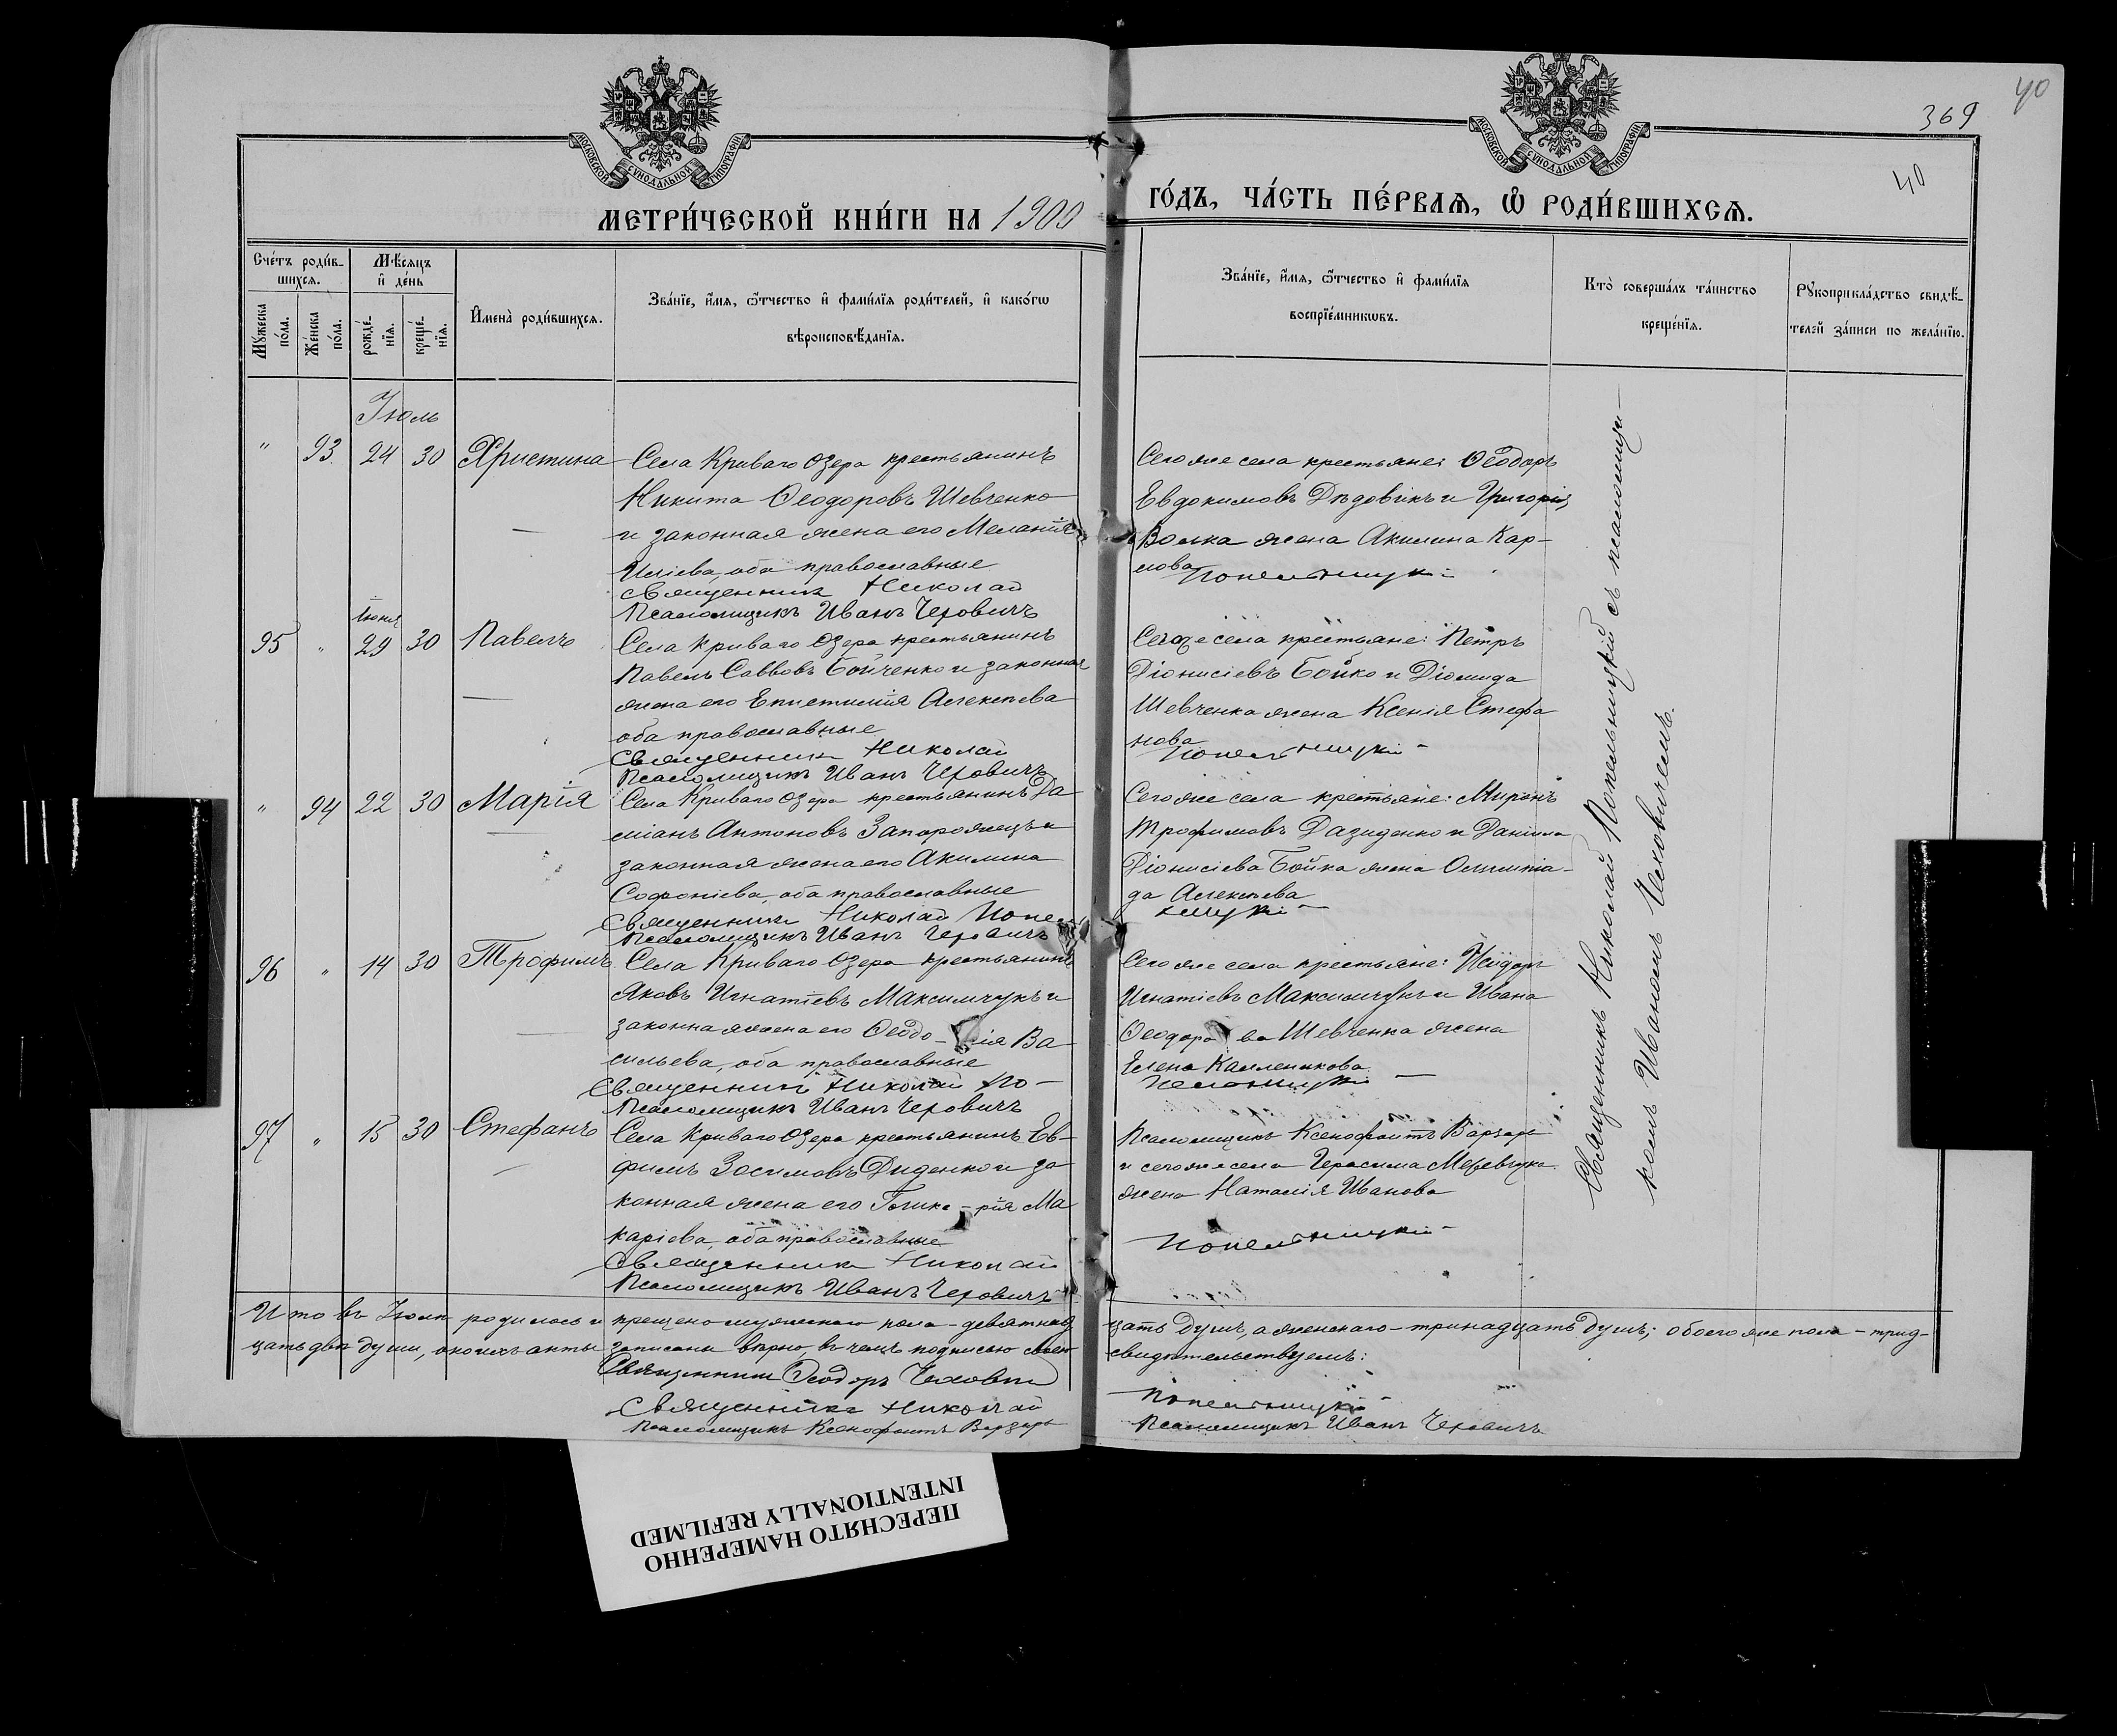 40
369
40
МОСКОВСКОЙ СѴНОДАЛЬНОЙ ТИПОГРАФІИ
МОСКОВСКОЙ СѴНОДАЛЬНОЙ ТИПОГРАФІИ
МЕТРИ́ЧЕСКОЙ КНИ́ГИ НА 1900
ГО́ДЪ, ЧА́СТЬ ПЕ́РВАѦ, Ѽ РОДИ́ВШИХСѦ.
Сче́тъ роди́в-
шихсѧ.
Мѣ́сѧцъ
и҆ де́нь
Мꙋ́жеска по́ла.
Же́нска по́ла.
рожде́-
нїѧ.
креще́-
нїѧ.
И҆мена̀ роди́вшихсѧ.
Зва́нїе, и҆́мѧ, ѻ҆́тчество и҆ фами́лїѧ роди́телей, и҆ како́гѡ
вѣроисповѣ́данїѧ.
Зва́нїе, и҆́мѧ, ѻ҆́тчество и҆ фами́лїѧ
воспрїе́мникѡвъ.
Кто̀ соверша́лъ та́инство
креще́нїѧ.
Рꙋкоприкла́дство свидѣ́-
телей за́писи по жела́нїю.
Іюль
" 93 24 30 Христина Села Криваго Озера крестьянинъ
Никита Ѳеодоровъ Шевченко
и законная жена его Меланія
Иліева, оба православные
Священникъ Николай
Псаломщикъ Иванъ Чеховичъ
Сего же села крестьяне: Ѳеодоръ
Евдокимовъ Дѣдовикъ и Григорія
Волка жена Акилина Кар-
пова
Попельницкій
Іюня
95 " 29 30 Павелъ Села Криваго Озера крестьянинъ
Павелъ Саввовъ Бойченко и законная
жена его Епистимія Алексѣева
оба православные
Священникъ Николай
Псаломщикъ Иванъ Чеховичъ
Сего же села крестьяне: Петръ
Діонисіевъ Бойко и Діомида
Шевченка жена Ксенія Стефа
нова
Попельницкій
" 94 22 30 Марія Села Криваго Озера крестьянинъ Да
міанъ Антоновъ Запорожецъ и
законная жена его Акилина
Софоніева, оба православные
Священникъ Николай Попель
Псаломщикъ Иванъ Чеховичъ
Сего же села крестьяне: Миронъ
Трофимовъ Дазиденко и Даніила
Діонисіева Бойка жена Олимпіа-
да Алексѣева
ницкій
96 " 14 30 Трофимъ Села Криваго Озера крестьянинъ
Яковъ Игнатіевъ Максимчукъ и
законна жена его Ѳеодо-сія Ва-
сильева, оба православные
Священникъ Николай По-
Псаломщикъ Иванъ Чеховичъ
Сего же села крестьяне: Исидоръ
Игнатіевъ Максимчукъ и Ивана
Ѳеодоро ва Шевченка жена
Елена Каллиникова
пельницкій
97 " 15 30 Стефанъ Села Криваго Озера крестьянинъ Ев-
фимъ Зосимовъ Диденко и за
конная жена его Глике-рія Ма
каріева, оба православные
Священникъ Николай
Псаломщикъ Иванъ Чеховичъ
Псаломщикъ Ксенофонтъ Варзарь
и сего же села Герасима
жена Наталія Иванова
Попельницкій
Священникъ Николай Попельницкій съ псаломщи-
комъ Иваномъ Чеховичемъ.
Итого въ Іюлѣ родилось и крещено мужескаго пола - девятнад
цать душъ, а женскаго - тринадцать душъ; обоего же пола - трид-
цать двѣ души, о коихъ акты записаны вѣрно, въ чемъ подписью своею
свидѣтельствуемъ:
Священникъ Ѳеодоръ Чеховичъ
Священникъ Николай
Попельницкій
Псаломщикъ Ксенофонтъ Варзарь
Псаломщикъ Иванъ Чеховичъ
ПЕРЕСНЯТО НАМЕРЕННО
INTENTIONALLY REFILMED